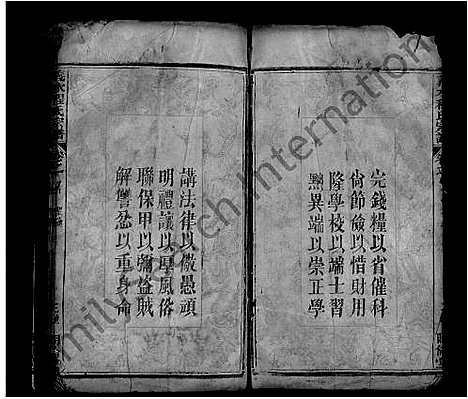 完錢糧以省催科
尙節儉以惜財用
隆學校以端士習
黜異端以崇正學
講法律以儆愚頑
明禮讓以厚風俗
聯保甲以弭盜賊
解讐忿以重身命